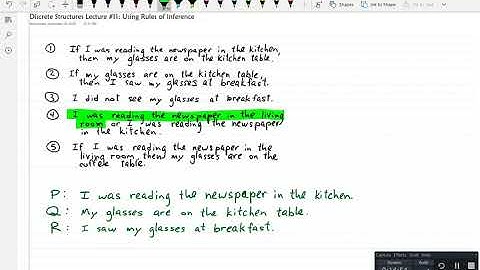 Discrete Structures Lecture #11: Using Rules of Inference
① If I was reading the newspaper in the kitchen,
then my glasses are on the kitchen table.
② If my glasses are on the kitchen table,
then I saw my glasses at breakfast.
③ I did not see my glasses at breakfast.
④ I was reading the newspaper in the living
room or I was reading the newspaper
in the kitchen.
⑤ If I was reading the newspaper in the
living room, then my glasses are on the
coffee table.
P: I was reading the newspaper in the kitchen.
Q: My glasses are on the kitchen table.
R: I saw my glasses at breakfast.